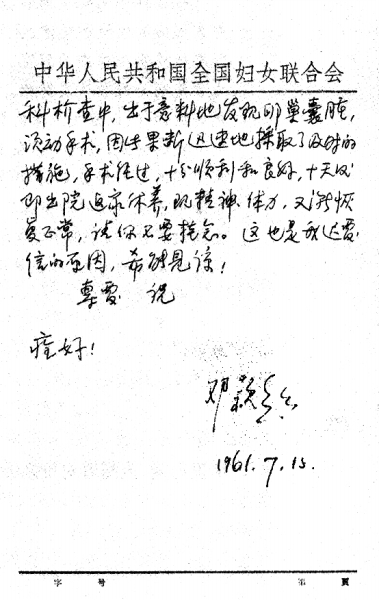 中华人民共和国全国妇女联合会
科检查中，出于意料地发现卵巢囊肿，
须动手术，因此果断迅速地採取了及时的
措施，手术经过，十分顺利和良好，十天后
即出院返家休养，现精神体力，又渐恢
复正常，请你不要挂念。这也是我迟覆
信的原因，希能见谅！
专覆 祝
痊好！
邓颖超
1961.7.15.
字 号 第 頁